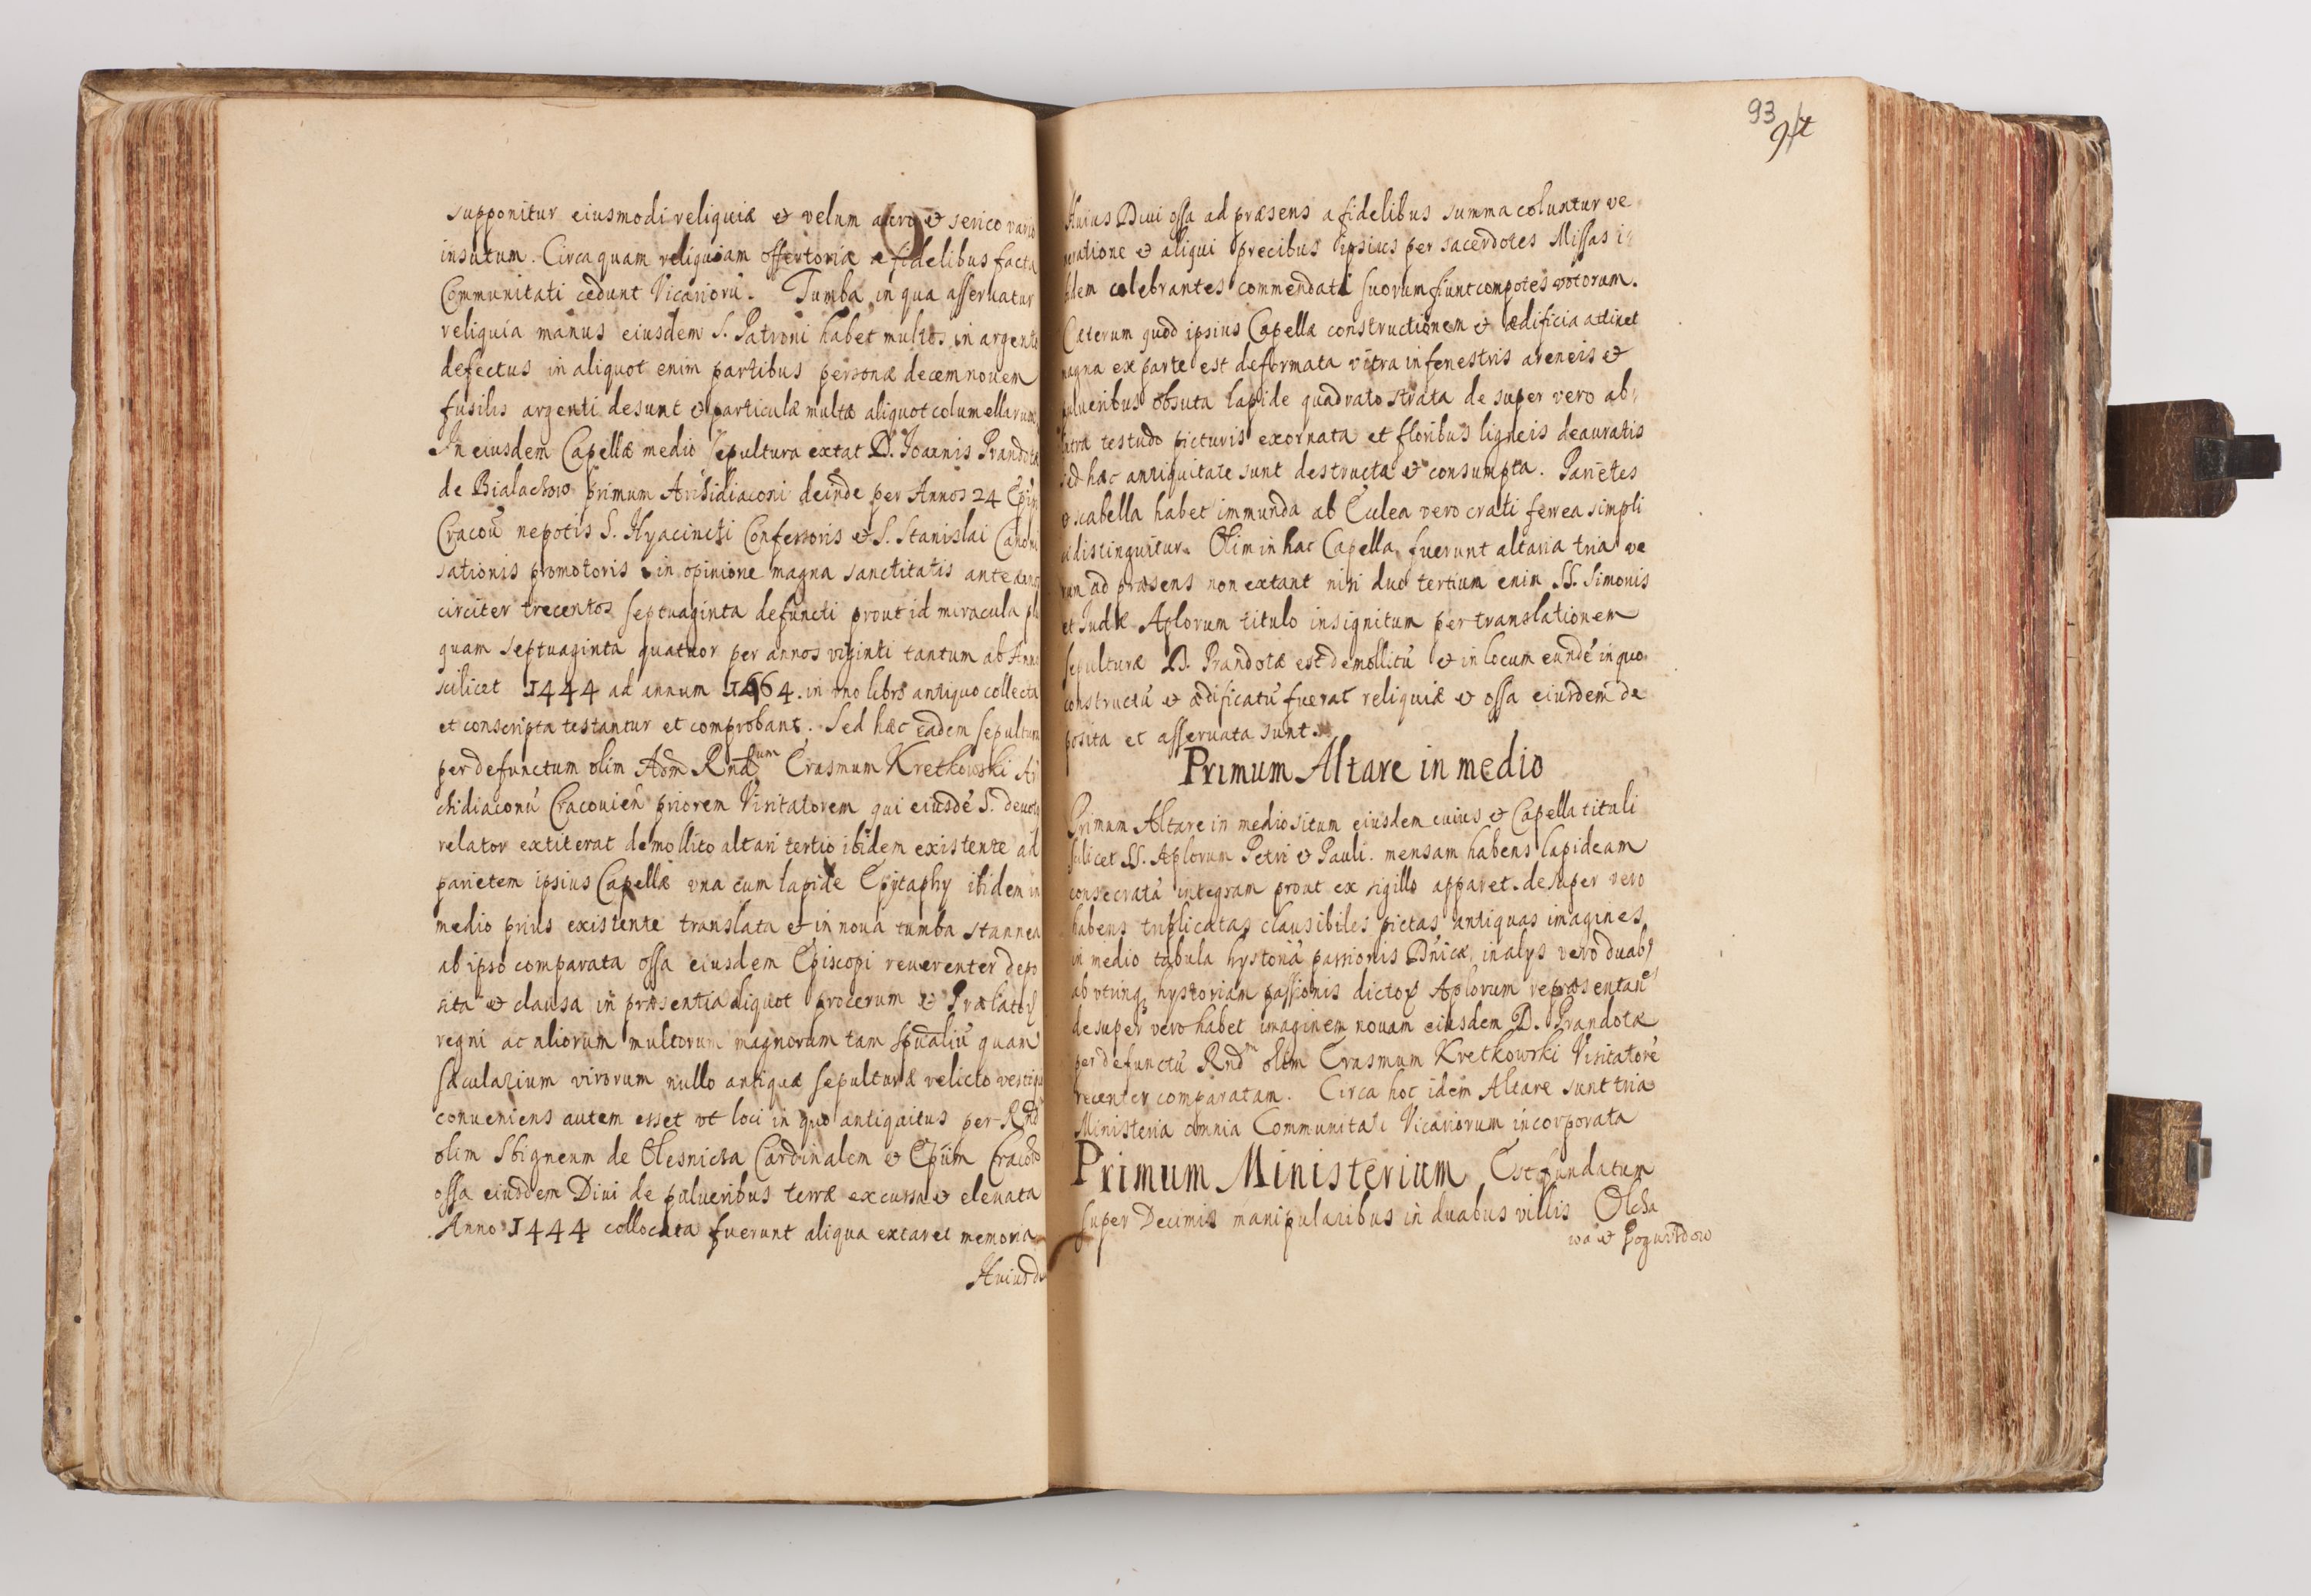 supponitur eiusmodi reliquiæ & velum auro & serico vario
insutum. Circa quam reliquiam offertoria a fidelibus facta
Communitati cedunt Vicariorū. Tumba in qua asseruatur
reliquia manus eiusdem S. Patroni habet multos in argento
defectus in aliquot enim partibus personæ decem nouem
fusilis argenti desunt & particulæ multæ aliquot columellarum
In eiusdem Capellæ medio sepultura extat D. Joannis Prandotæ
de Bialachow primum Archidiaconi deinde per Annos 24 Epi
Cracou nepotis S. Hyacincti Confessoris & S. Stanislai Canoni
sationis promotoris in opinione magna sanctitatis ante annos
circiter trecentos septuaginta defuncti prout id miracula plus
quam septuaginta quatuor per annos viginti tantum ab Anno
scilicet 1444 ad annum 1464. in vno libro antiquo collecta
et conscripta testantur et comprobant. Sed hæc eadem sepultura
per defunctum olim Adm Rnd͞um Erasmum Kretkowski Ar
chidiaconū Cracouien̄ priorem Visitatorem qui eiusdē S. deuotus
relator extiterat demollito altari tertio ibidem existente ad
parietem ipsius Capellæ vna cum lapide Epytaphy ibidem in
medio prius existente translata & in noua tumba stannea
ab ipso comparata ossa eiusdem Episcopi reuerenter depo
sita & clausa in præsentia aliquot procerum & Prælatorꝝ
regni ac aliorum multorum magnorum tam spūaliū quam
sæcularium virorum nullo antiquæ sepulturæ relicto vestigio
conueniens autem esset vt loci in quo antiquitus per Rnd
olim Sbigneum de Olesnicka Cardinalem & Epūm Cracou
ossa eiusdem Diui de pulueribus terræ excussa & eleuata
Anno 1444 collocata fuerunt aliqua extaret memoria
Huius d
93
94
Huius Diui ossa ad præsens a fidelibus summa coluntur ve
neratione & aliqui precibus ipsius per sacerdotes Missas i
bidem celebrantes commendati suorum fiunt compotes votorum.
Cæterum quod ipsius Capellæ constructionem & ædificia attinet
magna ex parte est deformata vitra in fenestris araneis &
pulueribus obsuta lapide quadrato strata de super vero ab
intra testudo picturis exornata et floribus ligneis deauratis
sed hæc antiquitate sunt destructa & consumpta. Parietes
& scabella habet immunda ab Eccl̄ea vero crati ferrea simpli
ci distinguitur. Olim in hac Capella fuerunt altaria tria ve
rum ad præsens non extant nisi duo tertium enim SS. Simonis
et Judæ Aplorum titulo insignitum per translationem
sepulturæ D. Prandotæ est demollitū & in locum eundē in quo
constructū & ædificatū fuerat reliquiæ & ossa eiusdem de
posita et asseruata sunt.
Primum Altare in medio
Primum Altare in medio situm eiusdem cuius & Capella tituli
scilicet SS. Aplorum Petri & Pauli. mensam habens lapideam
consecratā integram prout ex sigillo apparet. desuper vero
habens triplicatas clausibiles pictas antiquas imagines
in medio tabula hystoriā passionis Dn̄icæ, in alys vero duabꝰ
ab vtrinqꝫ hystoriam passionis dictoꝝ Aplorum repræsentan̄tes
desuper vero habet imaginem nouam eiusdem D. Prandotæ
per defunctū Rndm olim Erasmum Kretkowski Visitatorē
recenter comparatam. Circa hoc idem Altare sunt tria
Ministeria omnia Communitati Vicariorum incorporata
Primum Ministerium, Est fundatum
super Decimis manipularibus in duabus villis Olcha
wa & Pogwizdow